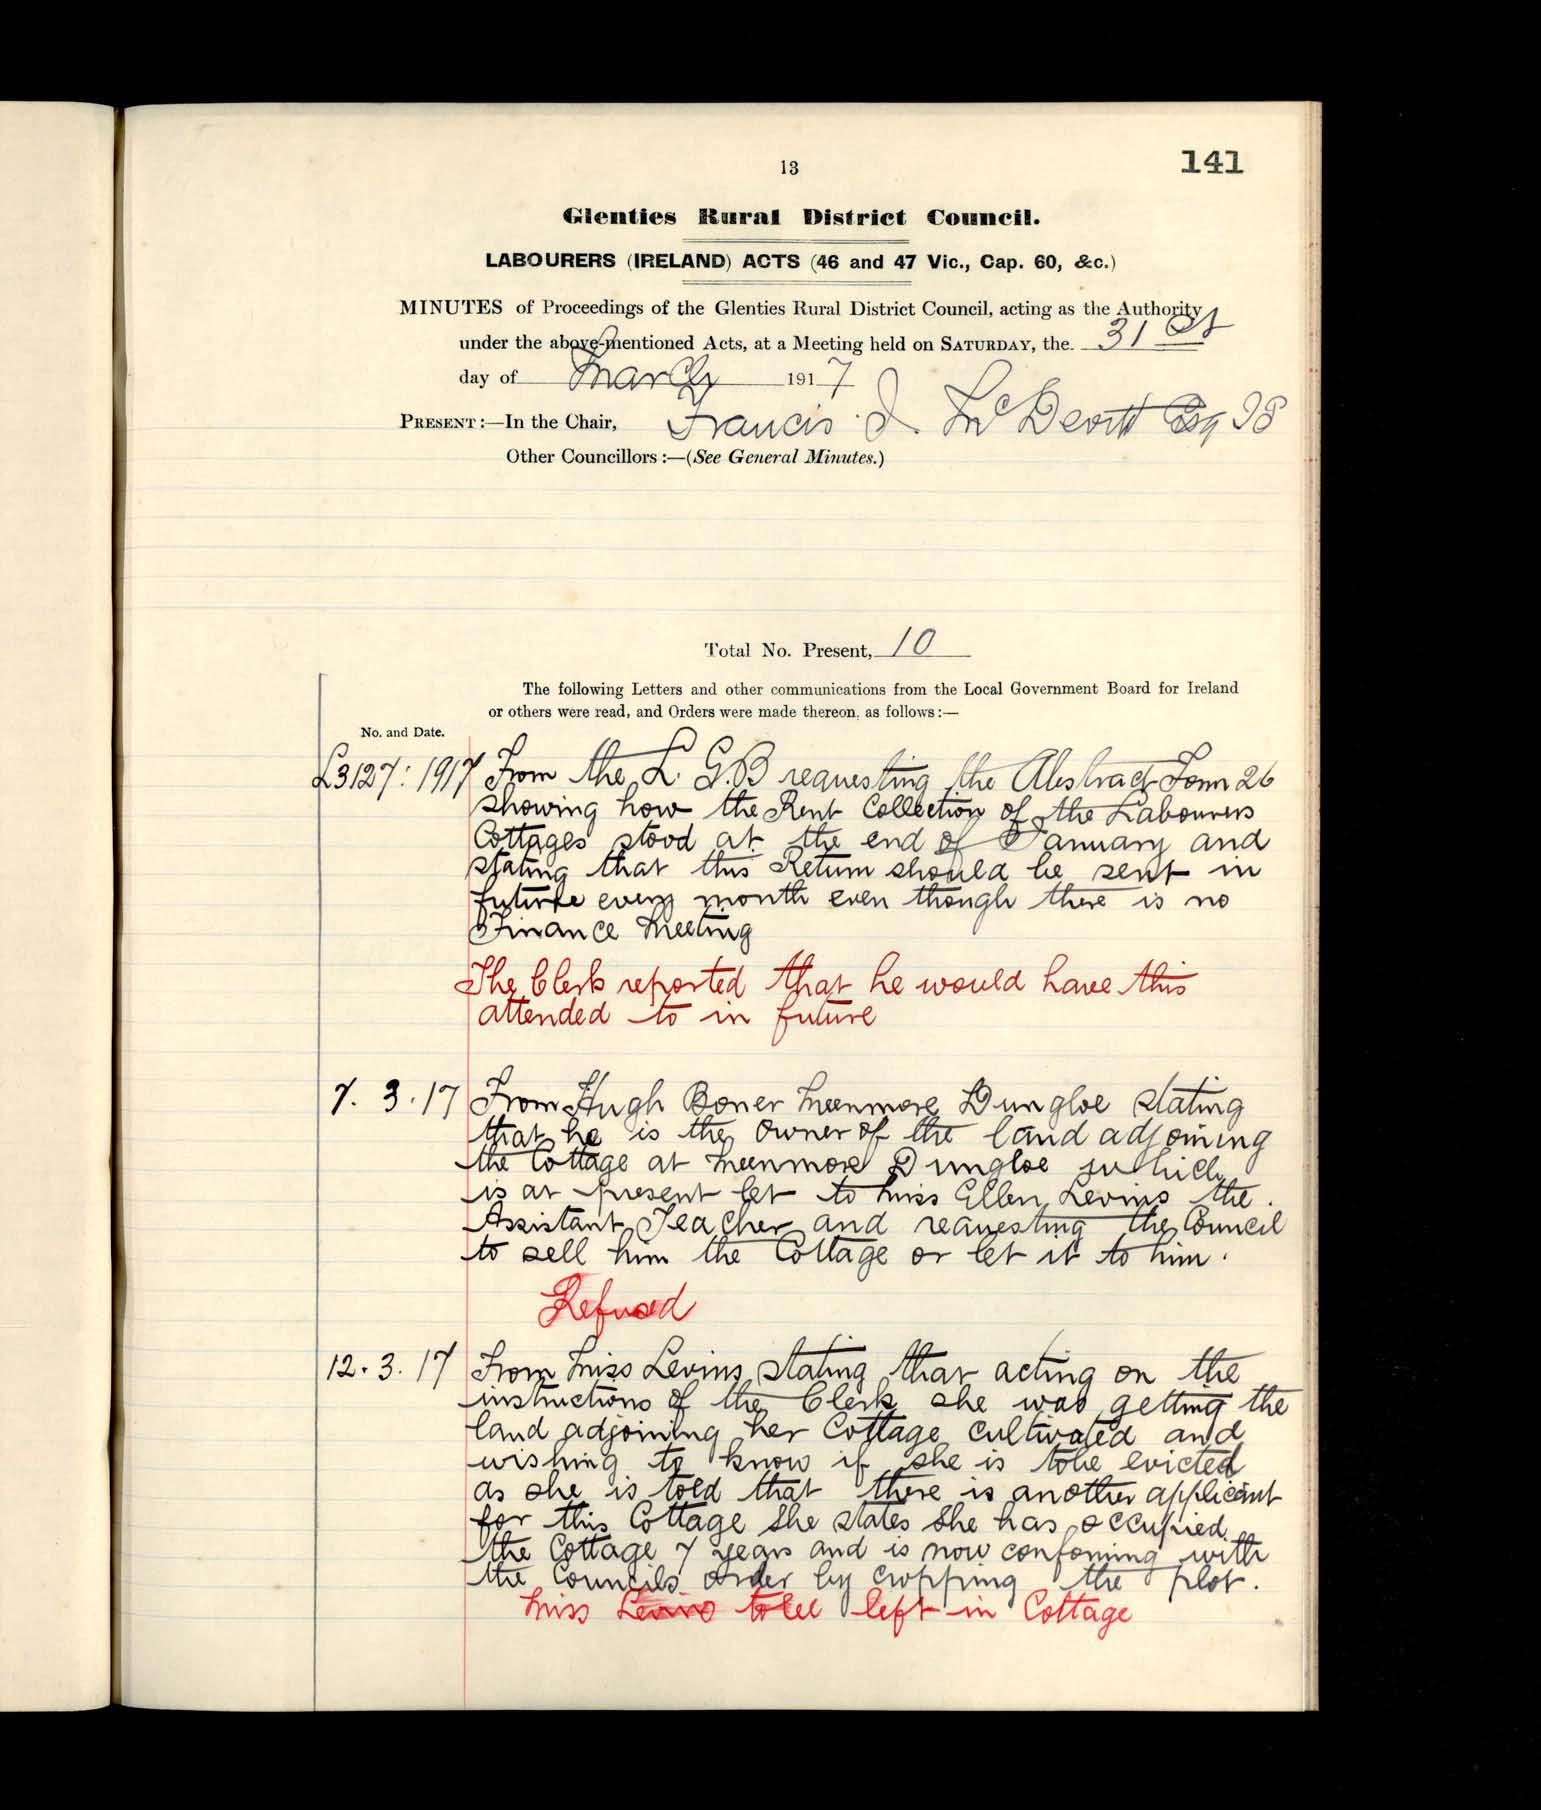 13
141
Glenties Rural District Council.
LABOURERS (IRELAND) ACTS (46 and 47 Vic., Cap. 60, &c.)
MINUTES of Proceedings of the Glenties Rural District Council, acting as the Authority
under the above-mentioned Acts, at a Meeting held on SATURDAY, the 31st
day of March 1917
PRESENT:—In the Chair, Francis J. McDevitt Esq JP
Other Councillors:—(See General Minutes.)
Total No. Present, 10
The following Letters and other communications from the Local Government Board for Ireland
or others were read, and Orders were made thereon, as follows:—
No. and Date.
L3127: 1917 From the L. G. B requesting the Abstract Form 26
showing how the Rent Collection of the Labourers
Cottages stood at the end of January and
stating that this Return should be sent in
future every month even though there is no
Finance Meeting
The Clerk reported that he would have this
attended to in future
7. 3. 17 From Hugh Boner Meenmore Dungloe stating
that he is the owner of the land adjoining
the Cottage at Meenmore Dungloe which
is at present let to Miss Ellen Levins the
Assistant Teacher and requesting the Council
to sell him the Cottage or let it to him.
Refused
12. 3. 17 From Miss Levins stating that acting on the
instructions of the Clerk she was getting the
land adjoining her Cottage cultivated and
wishing to know if she is to be evicted
as she is told that there is another applicant
for this Cottage She states She has occupied
the Cottage 7 years and is now conforming with
the Councils order by cropping the plot.
Miss Levins to be left in Cottage